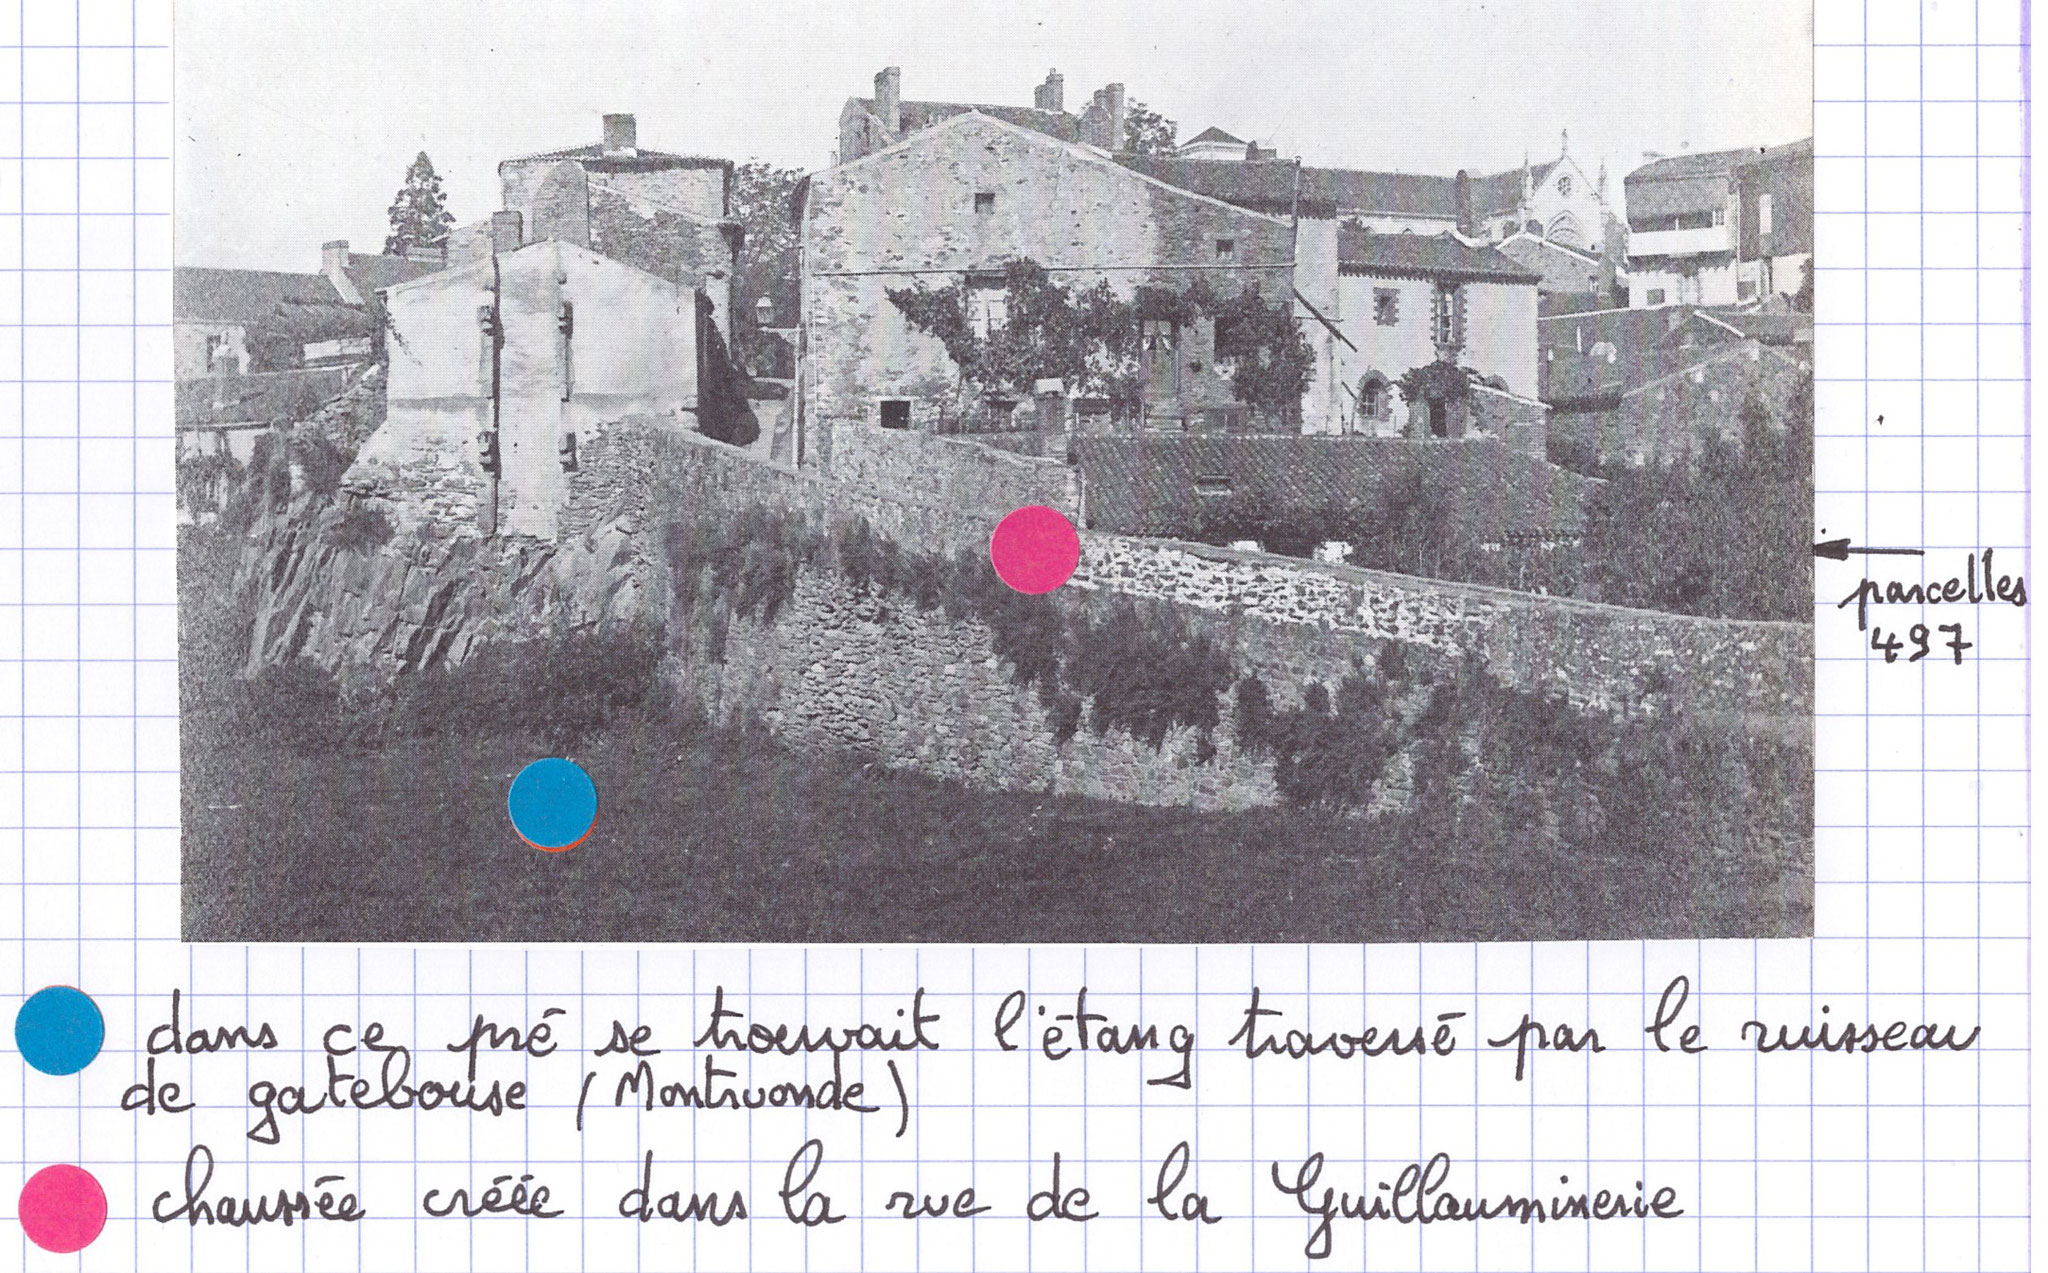 parcelles
497
dans ce pré se trouvait l'étang traversé par le ruisseau
de gatebourse (Montruonde)
chaussée créée dans la rue de la Guillauminerie